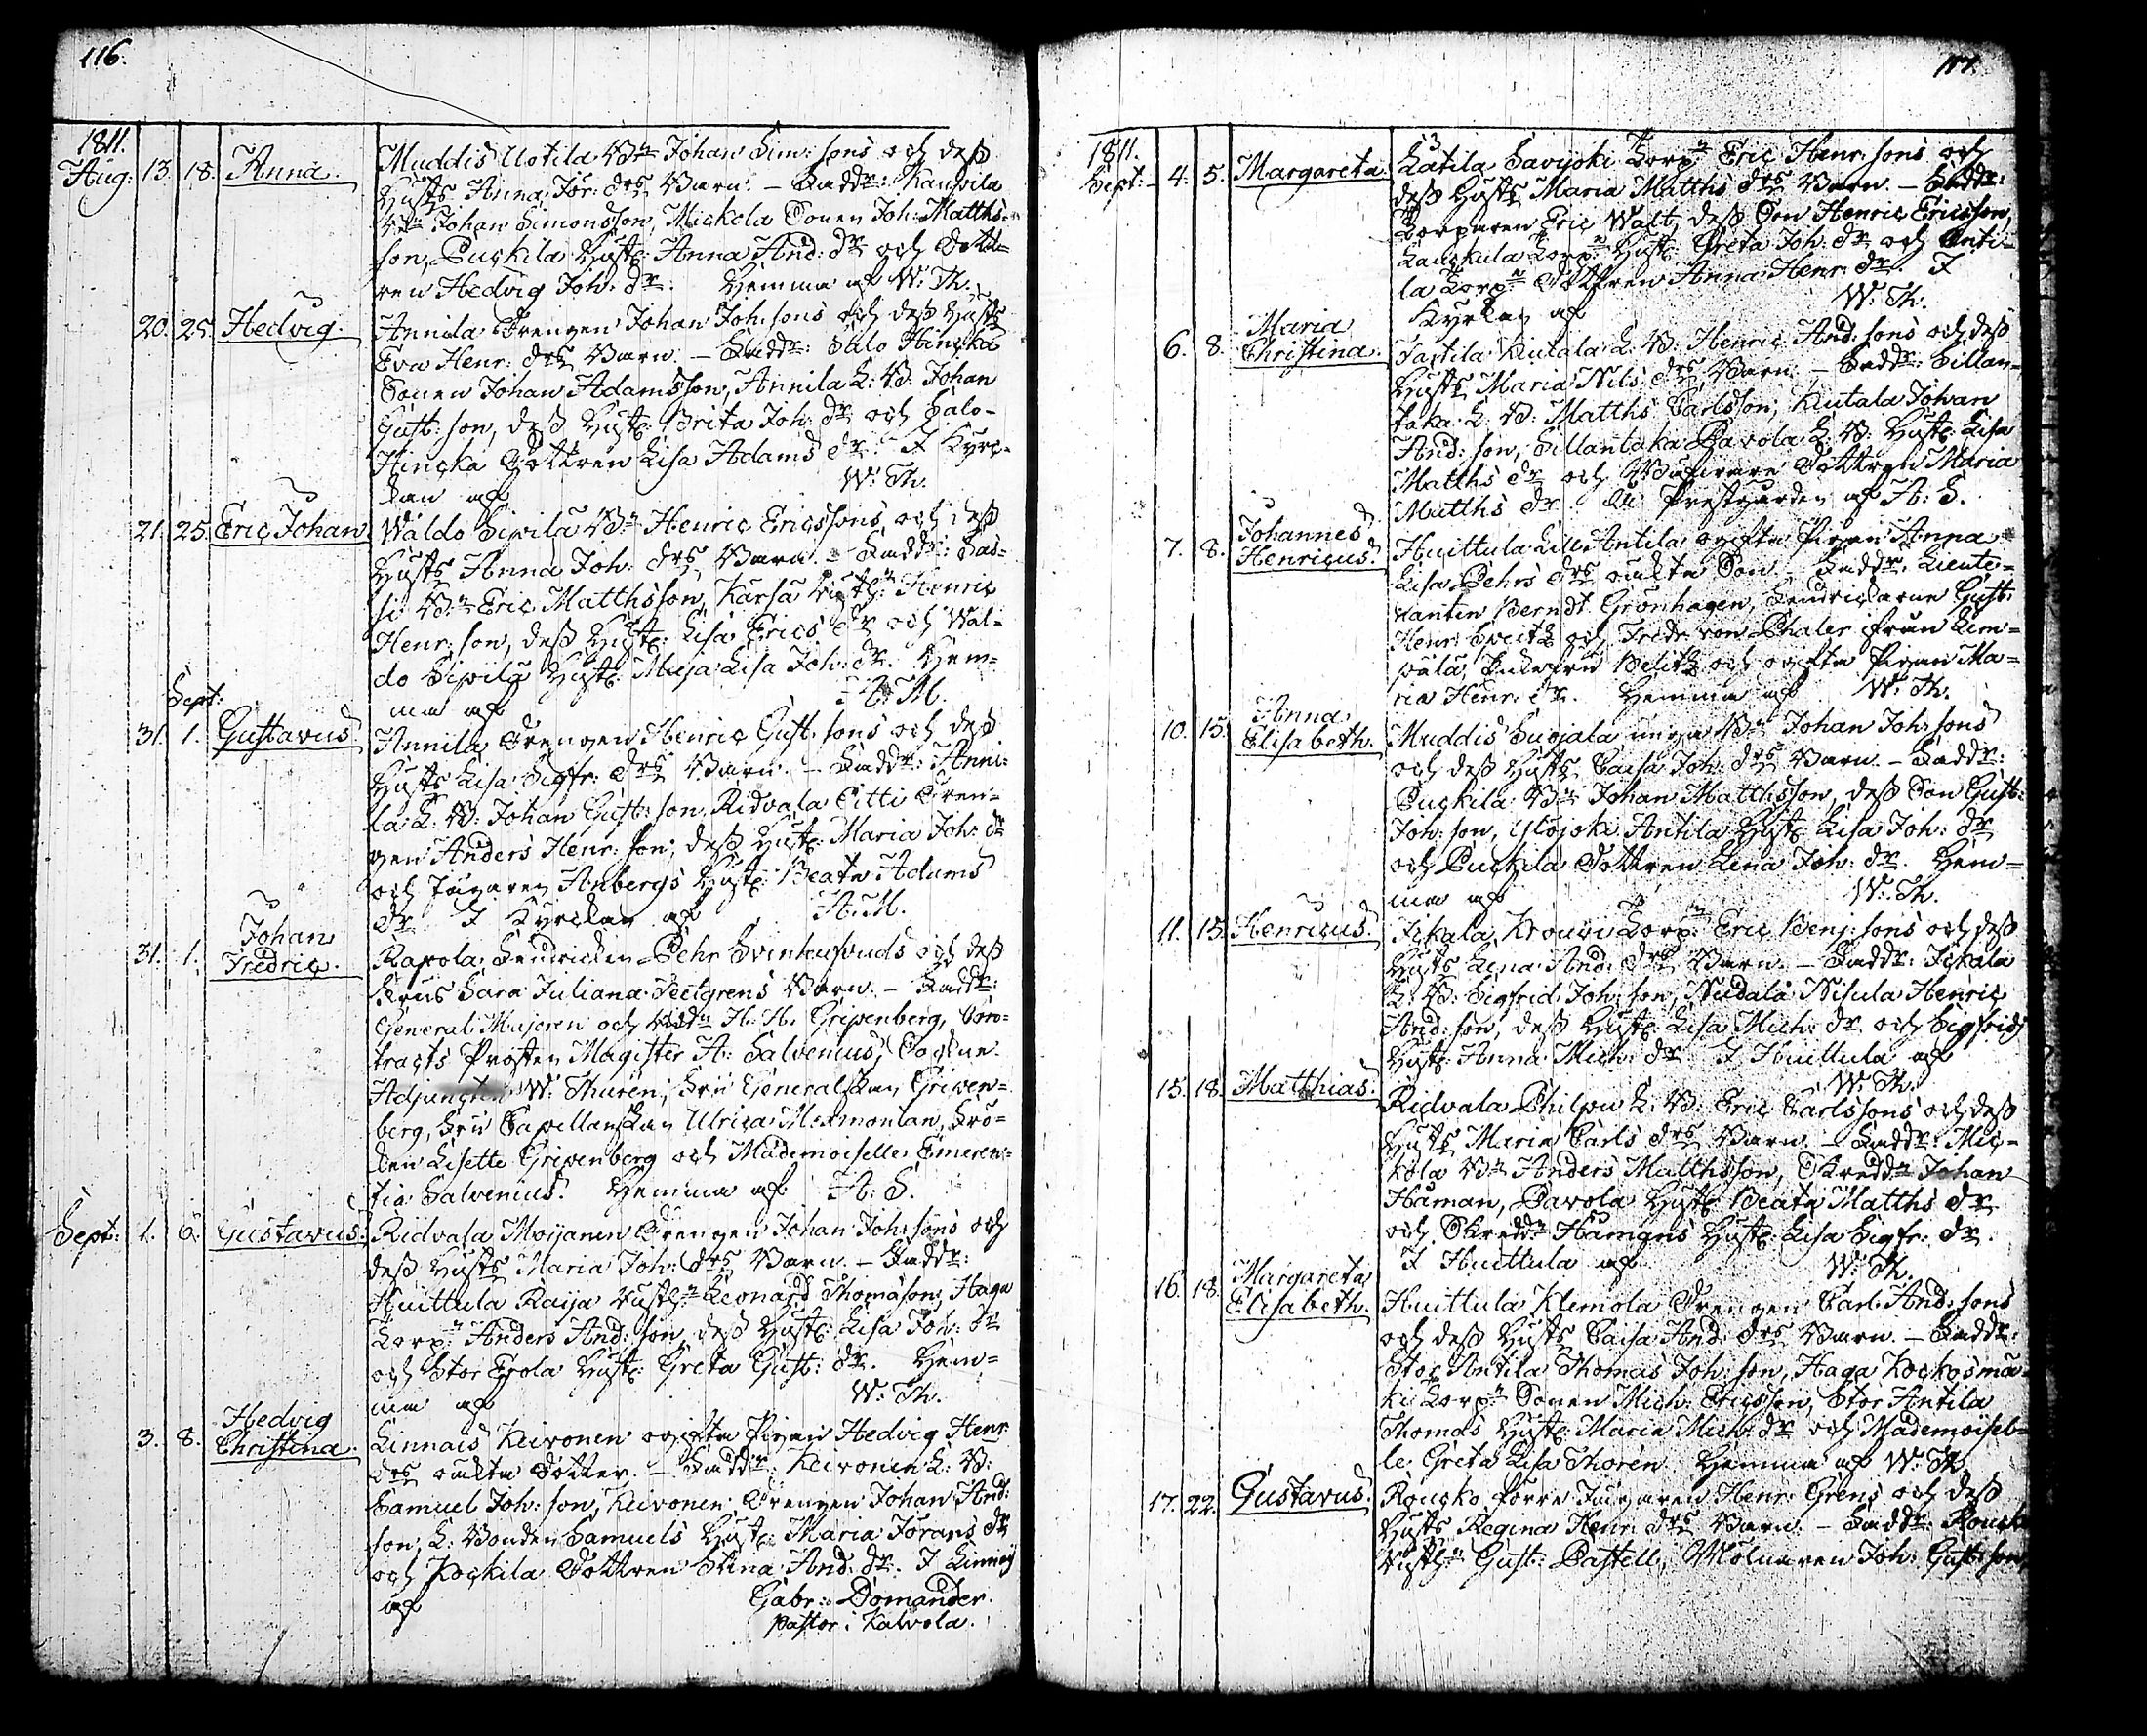 116.
1811.
Aug: 13. 18. Anna. Muddis Uotila Bn Johan Sim: sons och dess
Hust: Anna Jör: drs Barn. – Fadd:r: Kauvila
Bn Johan Simonsson, Mickola Sonen Joh: Matths
son, Puckila Hust: Anna And: dr och Dott-
ren Hedvig Joh: dr. Hemma af W: Th.
20. 25. Hedvig. Annila Drengen Johan Joh: sons och dess Husts
Eva Henr: drs Barn. – Fadd:r: Salo Hincka
Sonen Johan Adamsson, Annila L: B: Johan
Gust: son, dess Hust: Brita Joh: dr och Salo-
Hincka Dottren Lisa Adams dr. I Kyrc-
kan af W: Th.
21. 25. Eric Johan. Waldo Sipilä Bn Henric Ericssons och dess
Husts Anna Joh: drs Barn. – Fadd:r: Sas-
si Bn Eric Matthsson, Karsa Rustn: Henric
Henr: son, dess Hust: Lisa Erics dr och Wal-
do Sipilä Hust: Maja Lisa Joh: dr. Hem-
ma af A: M.
Sept:
31. 1. Gustavus. Annila Drengen Henric Gust: sons och dess
Husts Lisa Sigfr: drs Barn. – Fadd:r: Anni-
la L: B: Johan Gust: son, Ridvala Eitti Dren-
gen Anders Henr: son, dess Hust: Maria Joh: dr
och Jägaren Anbergs Hust: Beata Adams
dr. I Kyrckan af A: M.
Johan
31. 1. Fredric. Rapola Fendricken Pehr Svinhufvuds och dess
Frus Sara Juliana Teetgrens Barn. – Fadd:r:
General Majoren och Ridd:n H. H. Gripenberg, Con-
tracts Prosten Magister A: Salvenius, Sockne-
Adjuncten W: Thuren, Fru Generalskan Gripen-
berg, Fru Capellanskan Ulrica Mexmontan, Frö-
ken Lisette Gripenberg och Mademoiselle Emeren-
tia Salvenius. Hemma af A: S.
Sept: 1. 6. Gustavus. Ridvala Moijanen Drengen Johan Joh: sons och
dess Husts Maria Joh: drs Barn. – Fadd:r:
Huittula Raija Rustn: Leonard Thomasson, Haga
Torp:n Anders And: son, dess Hust: Lisa Joh: dr
och Stor Erola Hust: Greta Gust: dr. Hem-
ma af W: Th.
Hedvig
3. 8. Christina. Linnais Keironen ogifta Pigan Hedvig Henr:
drs oäkta Dotter. – Fadd:r: Keironen L: B:
Samuel Joh: son, Keironen Drengen Johan And:
son, L: Bonden Samuels Hust: Maria Jörans dr
och Kockila Dottren Stina And: dr. I Linnais
af Gabr: Domander.
pastor i Kalvola.
117.
1811.
Sept: 4. 5. Margareta. Latila Savijoki Torp:n Eric Henr: sons och
dess Husts Maria Matths drs Barn. – Fadd:r:
Torparen Eric Walt, dess Son Henric Ericsson,
Lauckula Torp:n Hust: Greta Joh: dr och Anti-
la Torp:n Dottren Anna Henr: dr. I
Kyrkan af W: Th.
Maria
6. 8. Christina. Tartila Kiutala L: B: Henric And: sons och dess
Husts Maria Nils drs Barn. – Fadd:r: Sillan-
taka L: B: Matths Carlsson, Kiutala Johan
And: son, Sillantaka Pavola L: B: Hust: Lisa
Matths dr och Dottren Maria
Matths dr. Prestgården af A: S.
Johannes
7. 8. Henricus. Huittula Lill Antila ogifta Pigan Anna
Lisa Pehrs drs oäkta Son. – Fadd:r: Lieute-
nanten Berndt Grönhagen, Fendrickarne Gust:
Henr: Speitz och Fredr: von Phaler från Lem-
päälä, Belitz och ogifta Pigan Ma-
ria Henr: dr. Hemma af W: Th.
Anna
10. 15. Elisabeth. Muddis Suojala unga Bn Johan Joh: sons
och dess Husts Caisa Joh: drs Barn. – Fadd:r:
Puckila Bn Johan Matthsson, dess Son Gust:
Joh: son, Ylöjoki Antila Hust: Lisa Joh: dr
och Puckila Dottren Lena Joh: dr. Hem-
ma af W: Th.
11. 15. Henricus. Jckala Krouvi Torp:n Eric Benj: sons och dess
Husts Lena And: drs Barn. – Fadd:r: Jckala
L: B: Sigfrid Joh: son, Nudala Nisula Henric
And: son, dess Hust: Lisa Mich: dr och Sigfrids
Hust: Anna Mich: dr. I Huittula af
W: Th.
15. 18. Matthias. Ridvala Philpu L: B: Eric Carlssons och dess
Husts Maria Carls drs Barn. – Fadd:r: Mic-
kola Bn Anders Matthsson, Skredd:n Johan
Haman, Pavola Hust: Beata Matths dr
och Skredd:n Hamans Hust: Lisa Sigfr: dr.
I Huittula af W: Th.
Margareta
16. 18. Elisabeth. Huittula Klemola Drengen Carl And: sons
och dess Husts Caisa And: drs Barn. – Fadd:r:
Stor Antila Thomas Joh: son, Haga Kockosmä-
ki Torp:n Sonen Mich: Ericsson, Stor Antila
Thomas Hust: Maria Mich: dr och Mademoisel-
le Greta Lisa Thoren. Hemma af W: Th.
17. 22. Gustavus. Roucko förre Jägaren Henr: Grens och dess
Husts Regina Henr: drs Barn. – Fadd:r: Roucko
Rustn: Gust: Pastell, Mölnaren Joh: Gust: son,